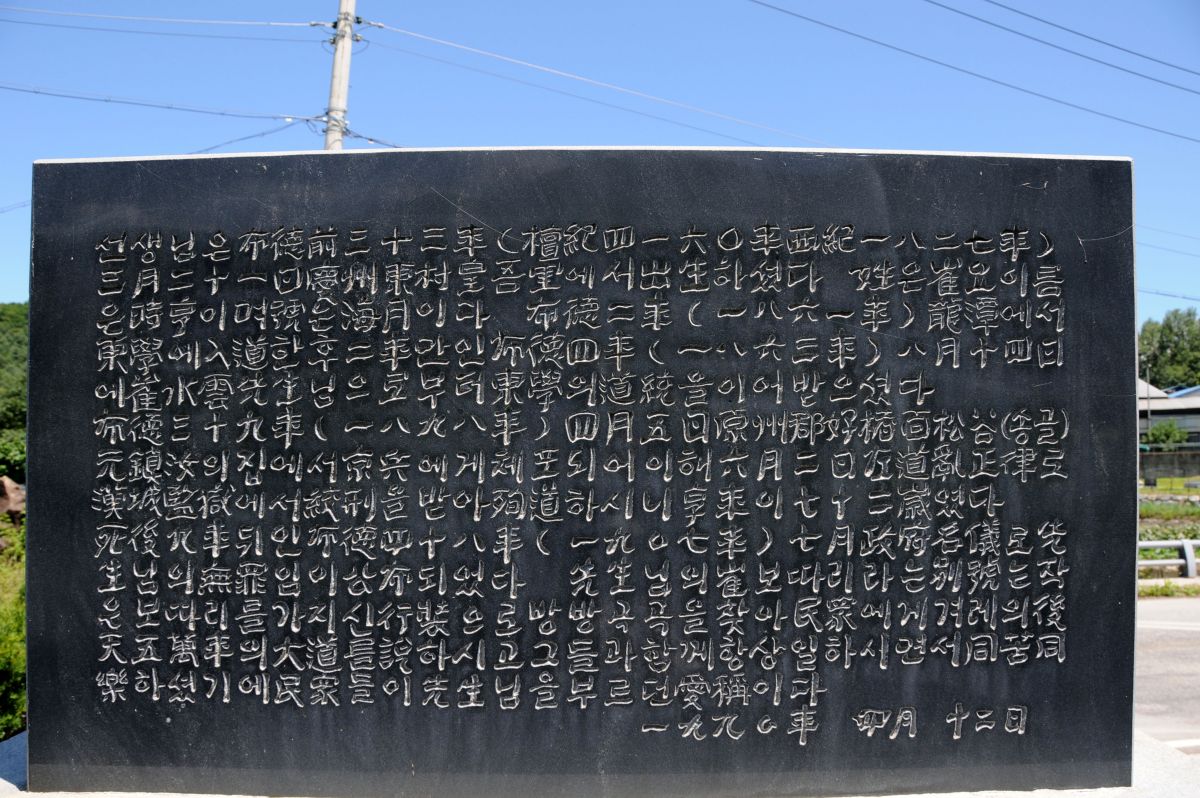 선생님은 布德前三十三年(檀紀四一六〇年西紀一八二七年)
三月二十一日慶州東村皇吾里에서出生하셨다 姓은崔요이름
은時亨이며號는海月이다 布德二年(一八六一年)龍潭에서
東學에入道한後二年만인布德四年(一八六三年)八月十四日
에崔水雲先生님으로부터東學의道統을이어받으셨다
布德三十九年(一八九八年)四月五日原州郡好楮面松谷(송골)
元鎭汝의집에서京兵에게체포되어이해六月二日左道亂正律로
漢城監獄에서絞刑을받아殉道하시니享年七十二歲였다
死後九年뒤인布德四十八年(一九〇七年)七月政府名儀로 先
生님의無罪임이公布되었다 先生님의崔보따리라는別號는作
은보따리를가지신行裝으로方方곡곡을찾아民衆에게겨레의後
天五萬年의大道를說하시고그들과함께항상일하시면서同苦同
樂하셨기에民衆들이先生님을부르던愛稱이다
一九九〇年 四月 十二日